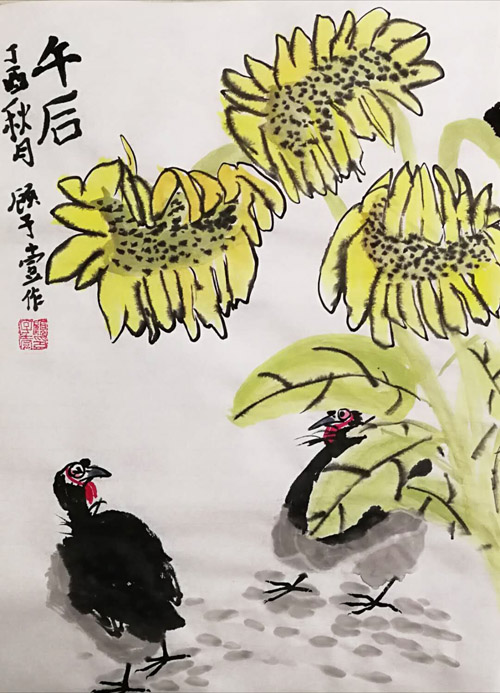 午后
丁酉秋月
顾子壹作